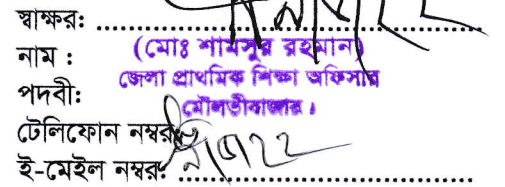 স্বাক্ষর:
নাম : (মোঃ শামসুর রহমান)
জেলা প্রাথমিক শিক্ষা অফিসার
পদবী:
মৌলভীবাজার।
টেলিফোন নম্বর:
ই-মেইল নম্বর: